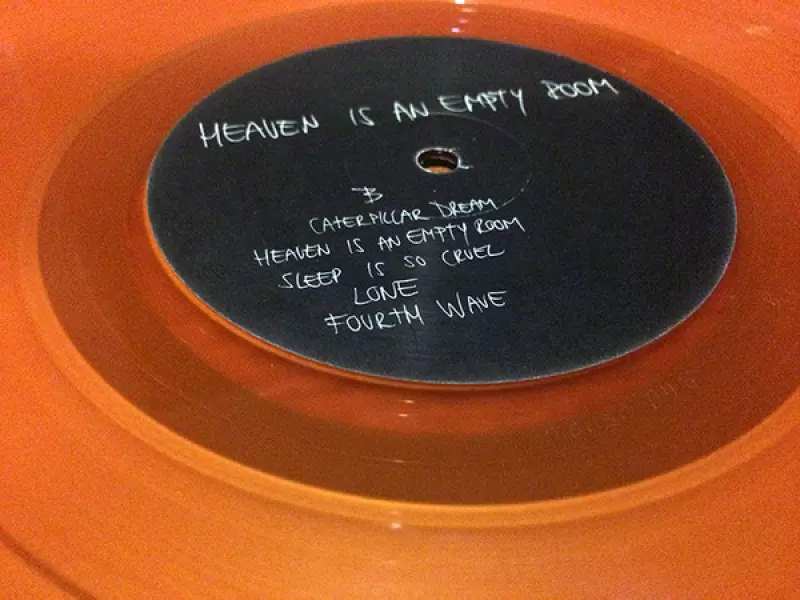 HEAVEN IS AN EMPTY ROOM
B
CATERPILLAR DREAM
HEAVEN IS AN EMPTY ROOM
SLEEP IS SO CRUEL
LONE
FOURTH WAVE